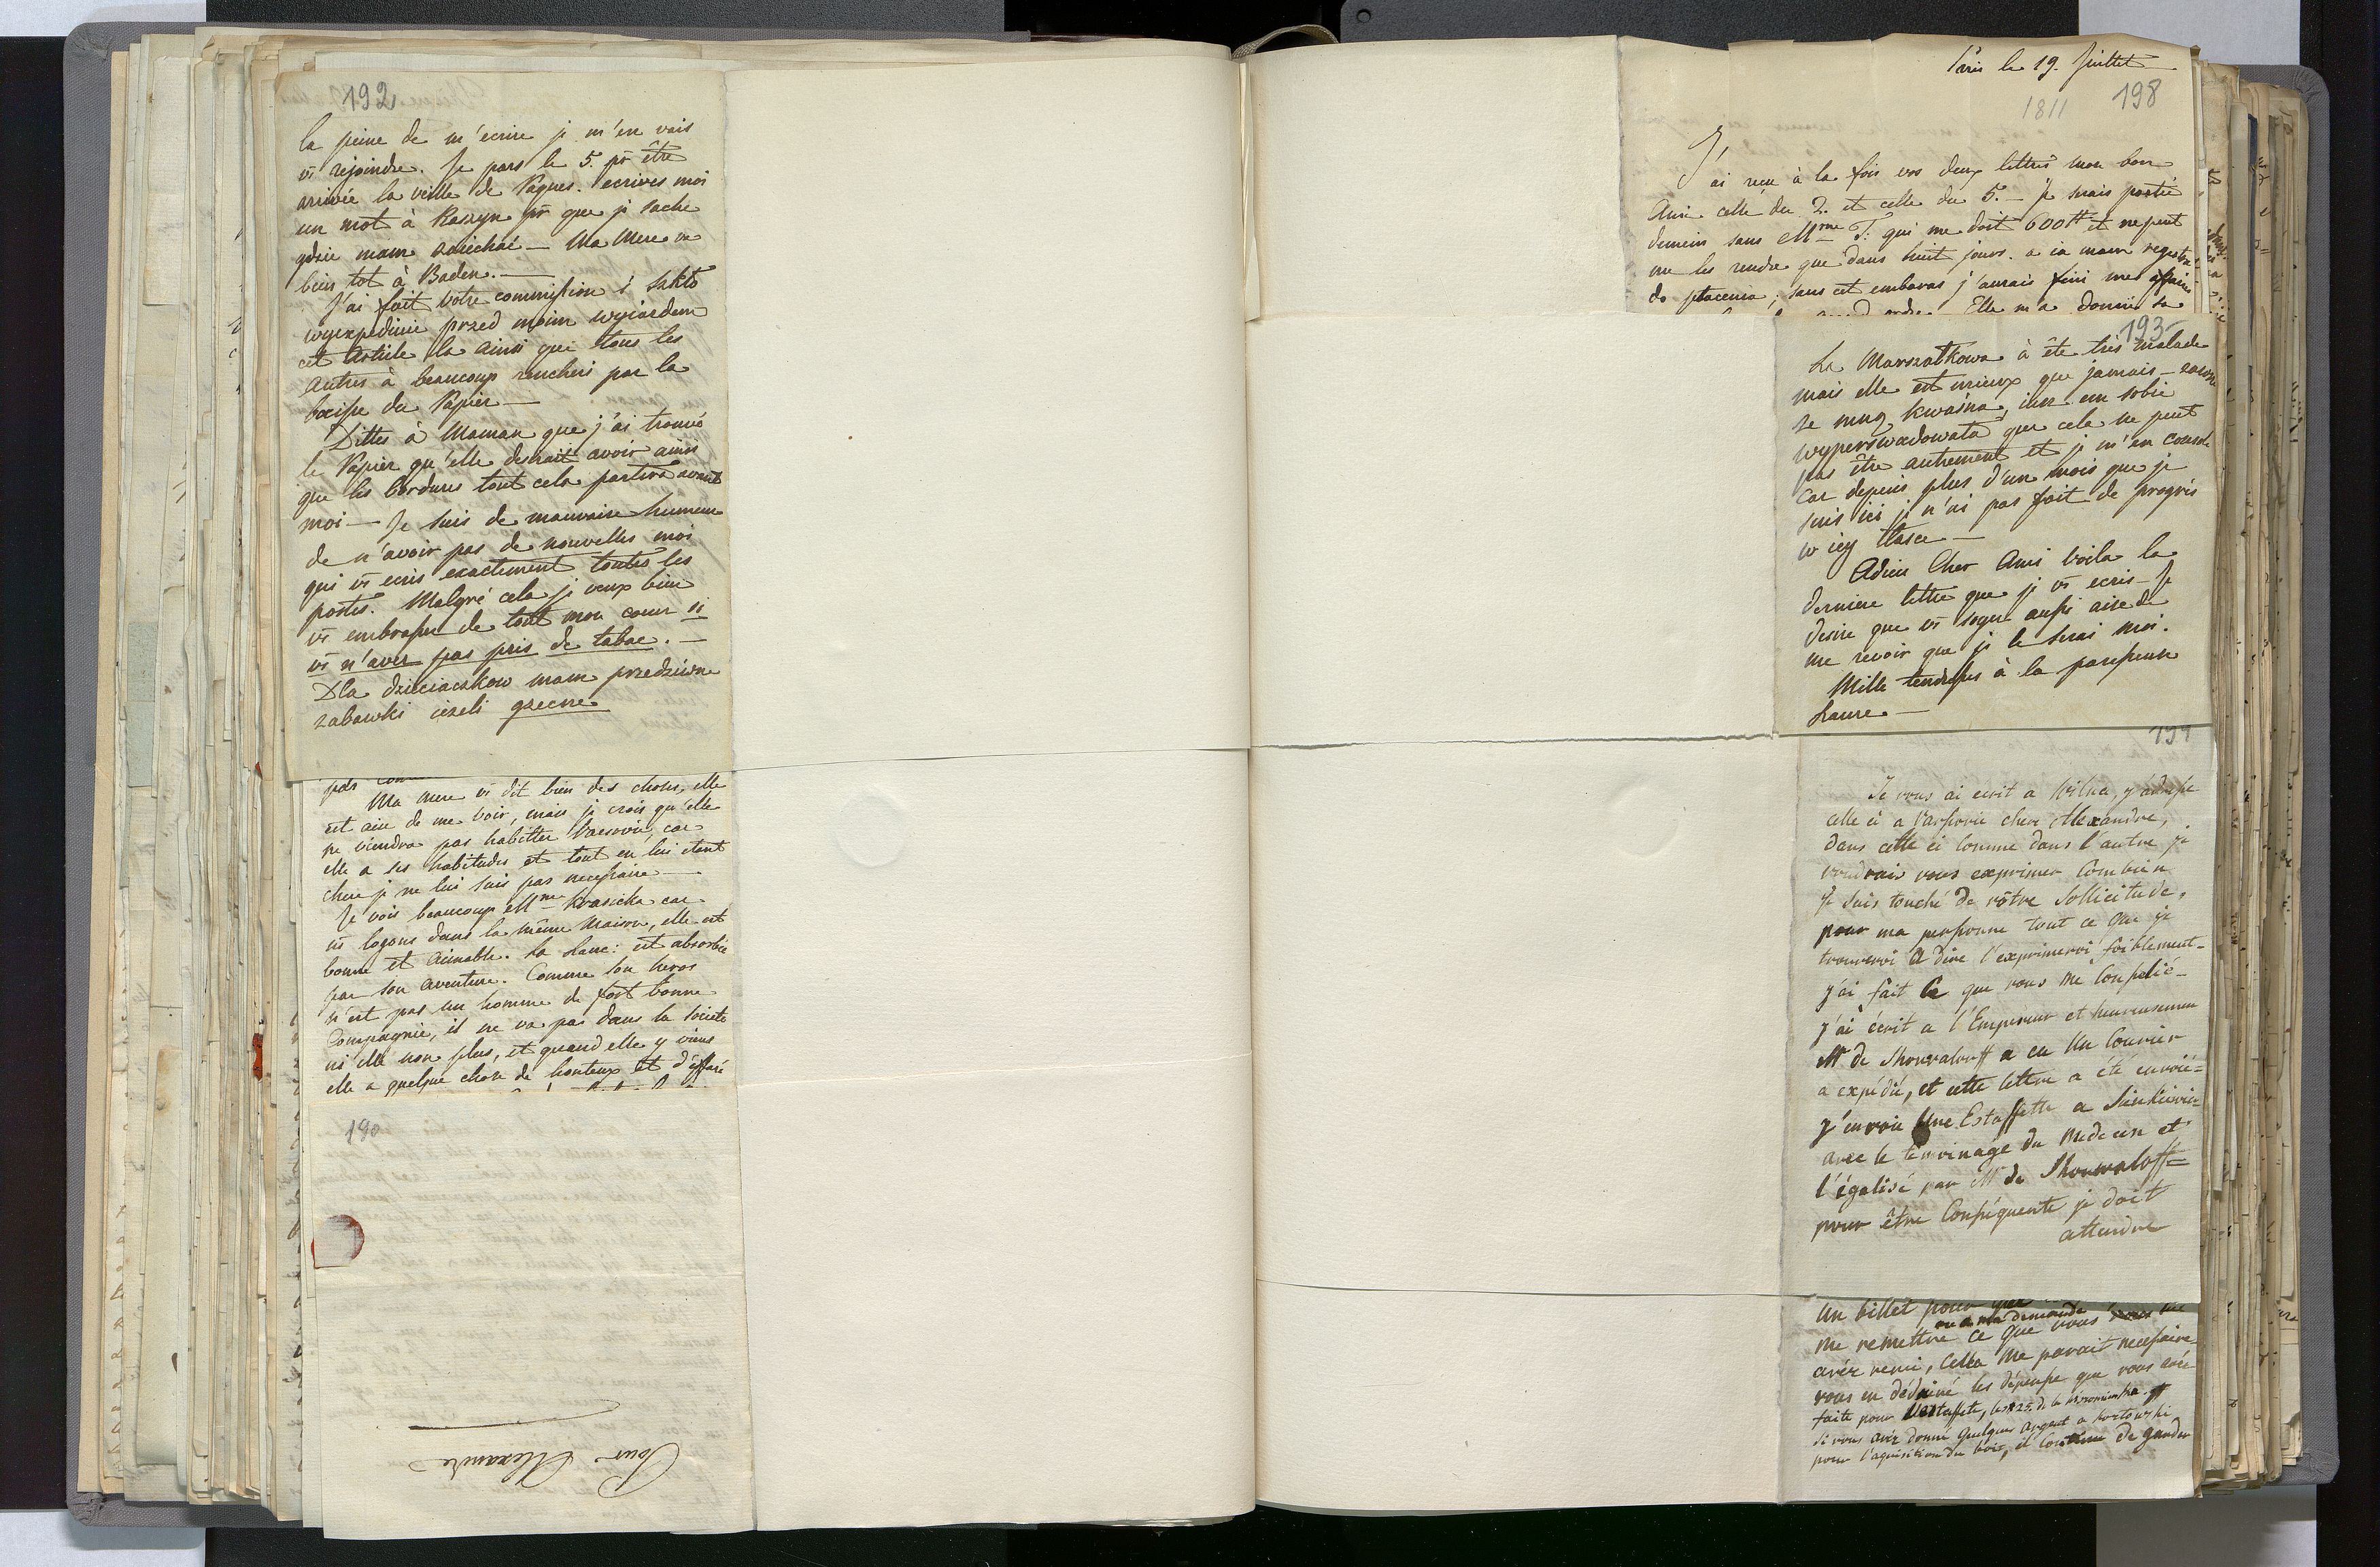 192
la peine de m'ecrire je m'en vais
vs rejoindre. Je pars le 5. pr être
arrivée la veille de Paques. ecrives moi
un mot à Raszyn pr que je sache
gdzie mam zaiechać — Ma Mere va
bien tot à Baden. —
J'ai fait votre commission i szkło
wyexpediuie przed moim wyiazdem
cet article la ainsi que tous les
autres à beaucoup rencheri par la
baisse du Papier —
Dittes à Maman que j'ai trouvé
le Papier qu'elle desirait avoir ainsi
que les bordures tout cela partira avant
moi — Je suis de mauvaise humeur
de n'avoir pas de nouvelles moi
qui vs ecris exactement toutes les
postes. Malgré cela je veux bien
vs embrasser de tout mon coeur si
vs n'avez pas pris de tabac. —
Dla dzieciaczkow mam przedziwne
zabawki iezeli grzeczne
pas
Ma mere vs dit bien des choses, elle
est aise de me voir, mais je crois qu'elle
ne viendra pas habitter Varsovie, car
elle a ses habitudes et tout en lui etant
chere je ne lui suis pas necessaire —
Je vois beaucoup Mme Krasicka car
ns logons dans la même maison, elle est
bonne et aimable. La Lanc: est absorbée
par son aventure. Comme son heros
n'est pas un homme de fort bonne
Compagnie, il ne va pas dans la societé
ni elle non plus, et quand elle y vient
elle a quelque chose de honteux et d'effaré
190
Pour Alexandre
Paris le 19. Juillet
1811 198
J'ai reçu à la fois vos deux lettres mon bon
Ami celle du 2. et celle du 5. — je serais partie
demain sans Mme T: qui me doit 600# et ne peut
me les rendre que dans huit jours. a ia mam regestra
do płacenia; sans cet embaras j'aurais fini mes affaires
Elle m'a donné sa
193
La Marszałkowa à été très malade
mais elle est mieux que jamais — zawsze
ze mną kwaśna, iuz em sobie
wyperswadowała que cela ne peut
pas être autrement et je m'en console
car depuis plus d'un mois que je
suis ici je n'ai pas fait de progrès
w iey łasce —
Adieu Cher Ami voila la
derniere lettre que je vs ecris — Je
desire que vs soyez aussi aise de
me revoir que je le serai moi.
Mille tendresses à la paresseuse
Laure —
Je vous ai ecrit a Wilna, j'adresse
celle ci a Varsovie cher Alexandre,
dans cette ci comme dans l'autre je
voudrais vous exprimer Combien
je suis touché de vôtre sollicitude,
pour ma personne tout ce que je
trouverai a dire l'exprimeroi foiblement —
j'ai fait ce que vous me conseilié —
j'ai écrit a l'Empereur et heureusement
Mr de Shouvaloff a eu un Courier
a expédié, et cette lettre a été envoié =
j'envoie une Estaffette a
avec le témoinage du Medecin et
l'égalisé par Mr de Shouvaloff =
pour être Conséquente je doit
attendre
un billet pour que
ou a ma demande
me remettre ce que vous
avéz remi, cella me parait necessaire
vous en déduiré les dépense que vous avé
faite pour l'estaffete,
Si vous avéz donné quelques argent a
pour l'aquisition du bois, il de garder